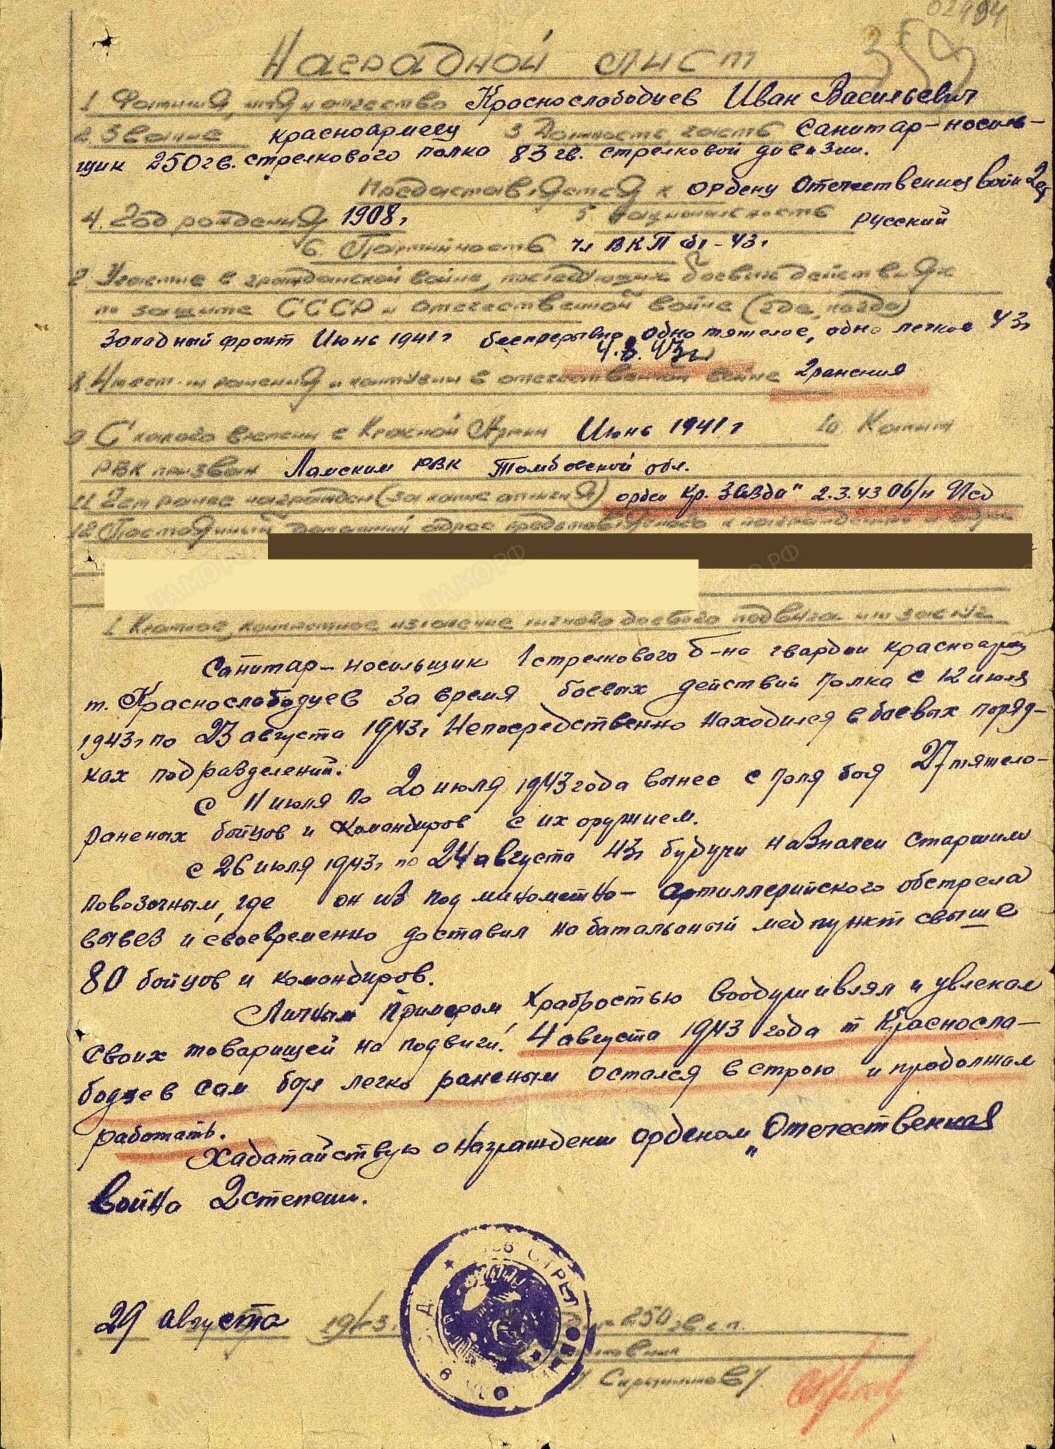 02494
359
Наградной лист
1 Фамилия, имя и отчество Краснослободцев Иван Васильевич
2. Звание красноармеец 3 Должность, часть Санитар-носиль-
щик 250 гв. стрелкового полка 83 гв. стрелковой дивизии.
Представляется к ордену Отечественная война 2 ст
4. Год рождения 1908 г 5 Национальность русский
6. Партийность чл ВКП(б) - 43 г
7 Участие в гражданской войне, последующих боевых действиях
по защите СССР и отечественной войне (где, когда)
Западный фронт Июнь 1941 г беспрерывно, одно тяжелое, одно легкое 43 г
4.8.43 г
8 Имеет ли ранения и контузии в отечественной войне 2 ранения
9 С какого времени в Красной Армии Июнь 1941 г 10 Каким
РВК призван Ламским РВК Тамбовской обл.
11 Чем ранее награжден (за какие отличия) орден Кр. Звезда" 2.3.43 06/н
12 Постоянный домашний адрес представляемого к награждению и адрес
1 Краткое, конкретное изложение личного боевого подвига или заслуг.
Санитар-носильщик 1 стрелкового б-на гвардии красноарм
т. Краснослободцев за время боевых действий полка с 12 июля
1943 г по 23 августа 1943 г Непосредственно находился в боевых поряд-
ках подразделений.
С 11 июля по 20 июля 1943 года вынес с поля боя 27 тяжело-
раненых бойцов и командиров с их оружием.
с 26 июля 1943 г по 24 августа 43 г будучи назначен старшим
повозочным, где он из под минометно- артиллерийского обстрела
вывез и своевременно доставил на батальоный медпункт свыше
80 бойцов и командиров.
Личным примером, храбростью воодушивлял и увлекал
своих товарищей на подвиги. 4 августа 1943 года т Красносла-
бодцев сам был легко раненым остался в строю и продолжал
работать.
Хадатайствую о награждении орденом „Отечественная
война 2 степени.
29 августа 1943 г. 250 гв.с.п.